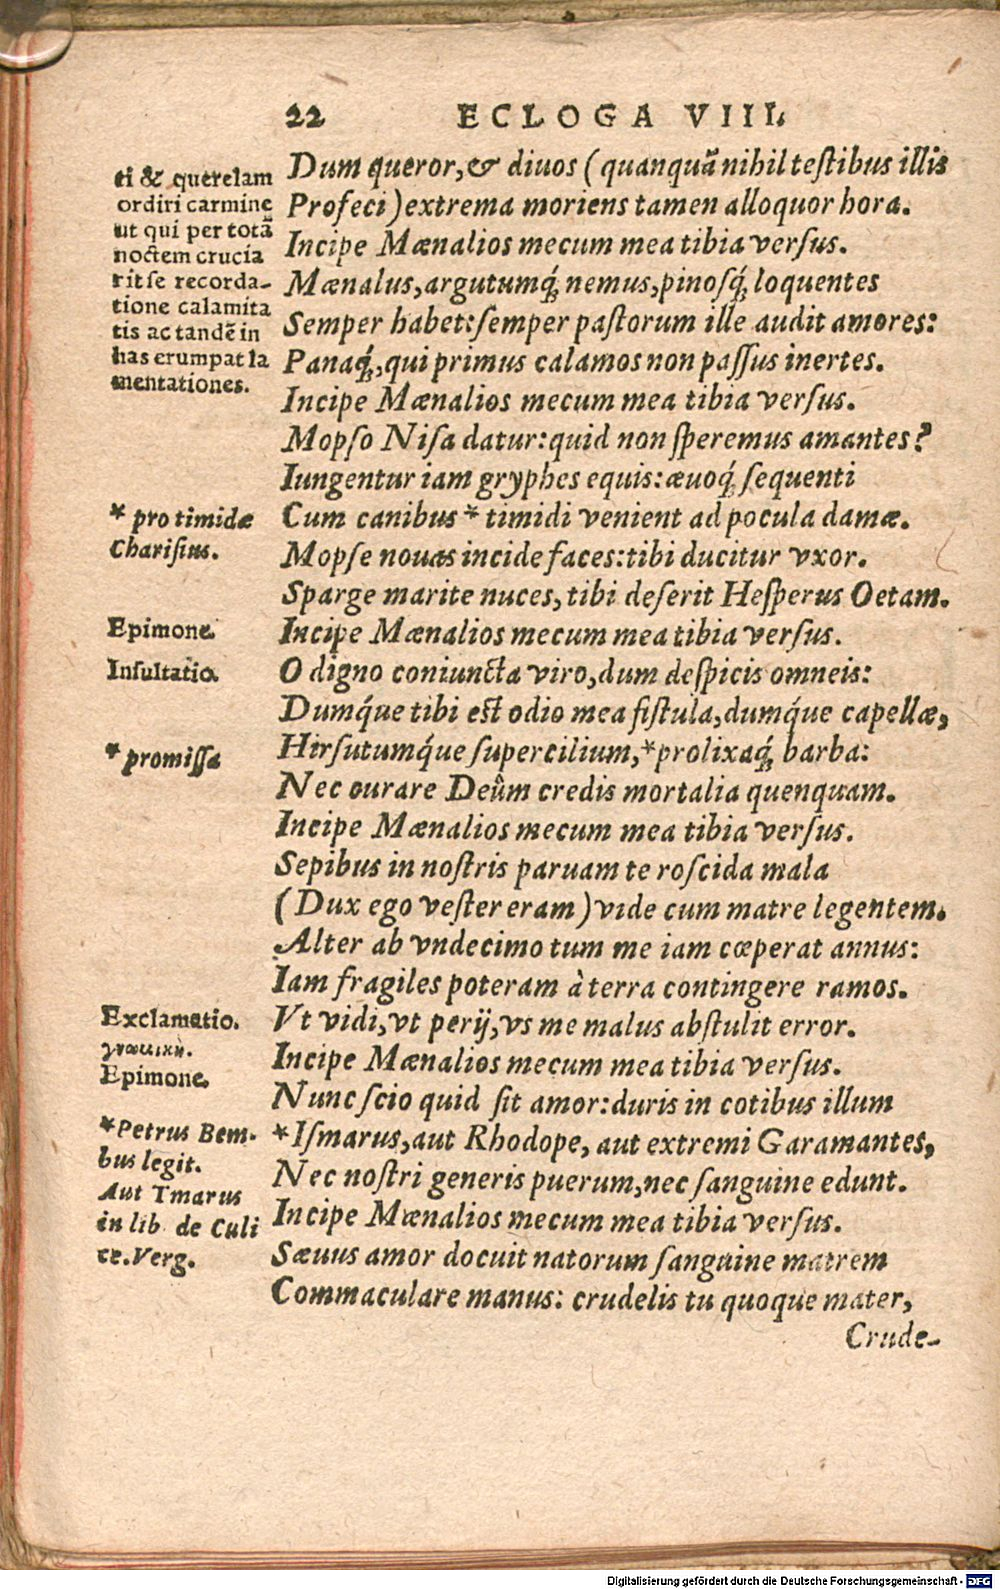 22 ECLOGA VIII.
ei & querelam
ordiri carmine
ut qui per totã
noctem crucia
rit se recorda-
tione calamita
tis ac tandẽ in
has erumpat la
mentationes.
Dum queror, & diuos (quanquã nihil testibus illis
Profeci) extrema moriens tamen alloquor hora.
Incipe Mænalios mecum mea tibia versus.
Mænalus, argutumq́; nemus, pinosq́; loquentes
Semper habet: semper pastorum ille audit amores:
Panaq́;, qui primus calamos non passus inertes.
Incipe Mænalios mecum mea tibia versus.
Mopso Nisa datur: quid non speremus amantes?
Iungentur iam gryphes equis: æuoq́; sequenti
* pro timidæ
Charisius.
Cum canibus * timidi venient ad pocula damæ.
Mopse nouas incide faces: tibi ducitur vxor.
Sparge marite nuces, tibi deserit Hesperus Oetam.
Epimone.
Incipe Mænalios mecum mea tibia versus.
Insultatio.
O digno coniuncta viro, dum despicis omneis:
Dumq́ue tibi est odio mea fistula, dumq́ue capellæ,
* promissa
Hirsutumq́ue supercilium, * prolixaq́; barba:
Nec curare Deûm credis mortalia quenquam.
Incipe Mænalios mecum mea tibia versus.
Sepibus in nostris paruam te roscida mala
(Dux ego vester eram) vide cum matre legentem.
Alter ab vndecimo tum me iam cœperat annus:
Iam fragiles poteram à terra contingere ramos.
Exclamatio.
γνωμική.
Epimone.
Vt vidi, vt perij, vs me malus abstulit error.
Incipe Mænalios mecum mea tibia versus.
Nunc scio quid sit amor: duris in cotibus illum
* Petrus Bem-
bus legit.
Aut Tmarus
in lib. de Culi
ce. Verg.
* Ismarus, aut Rhodope, aut extremi Garamantes,
Nec nostri generis puerum, nec sanguine edunt.
Incipe Mænalios mecum mea tibia versus.
Sæuus amor docuit natorum sanguine matrem
Commaculare manus: crudelis tu quoque mater,
Crude-
Digitalisierung gefördert durch die Deutsche Forschungsgemeinschaft - DFG